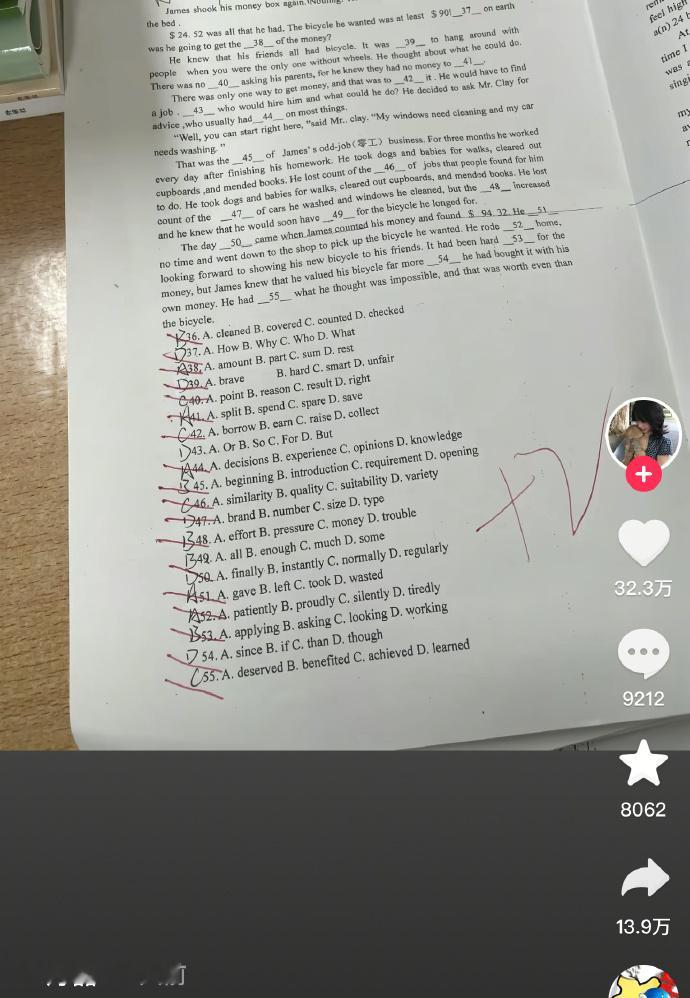 James shook his money box again.
the bed .
$ 24. 52 was all that he had. The bicycle he wanted was at least $ 90! __37__ on earth
was he going to get the __38__ of the money?
He knew that his friends all had bicycle. It was __39__ to hang around with
people when you were the only one without wheels. He thought about what he could do.
There was no __40__ asking his parents, for he knew they had no money to __41__.
There was only one way to get money, and that was to __42__ it . He would have to find
a job . __43__ who would hire him and what could he do? He decided to ask Mr. Clay for
advice ,who usually had__44__ on most things.
"Well, you can start right here, "said Mr.. clay. "My windows need cleaning and my car
needs washing. "
That was the __45__ of James' s odd-job(零工) business. For three months he worked
every day after finishing his homework. He took dogs and babies for walks, cleared out
cupboards ,and mended books. He lost count of the __46__ of jobs that people found for him
to do. He took dogs and babies for walks, cleared out cupboards, and mended books. He lost
count of the __47__ of cars he washed and windows he cleaned, but the __48__ increased
and he knew that he would soon have __49__ for the bicycle he longed for.
The day __50__ came when James counted his money and found $ 94. 32. He __51__
no time and went down to the shop to pick up the bicycle he wanted. He rode __52__ home,
looking forward to showing his new bicycle to his friends. It had been hard __53__ for the
money, but James knew that he valued his bicycle far more __54__ he had bought it with his
own money. He had __55__ what he thought was impossible, and that was worth even than
the bicycle.
B36. A. cleaned B. covered C. counted D. checked
D37. A. How B. Why C. Who D. What
A38. A. amount B. part C. sum D. rest
D39. A. brave B. hard C. smart D. unfair
C40. A. point B. reason C. result D. right
A41. A. split B. spend C. spare D. save
C42. A. borrow B. earn C. raise D. collect
D43. A. Or B. So C. For D. But
A44. A. decisions B. experience C. opinions D. knowledge
B45. A. beginning B. introduction C. requirement D. opening
C46. A. similarity B. quality C. suitability D. variety
D47. A. brand B. number C. size D. type
B48. A. effort B. pressure C. money D. trouble
B49. A. all B. enough C. much D. some
D50. A. finally B. instantly C. normally D. regularly
A51. A. gave B. left C. took D. wasted
A52. A. patiently B. proudly C. silently D. tiredly
B53. A. applying B. asking C. looking D. working
D 54. A. since B. if C. than D. though
C55. A. deserved B. benefited C. achieved D. learned
feel high
a(n) 24 b
At
time I
was a
singi
my
32.3万
9212
8062
13.9万